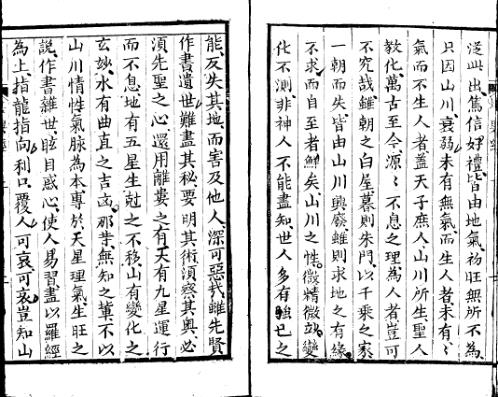 從此出篤信好禮皆由地氣初旺無所不為
只因山川衰弱未有無氣而生人者未有
氣而不生人者蓋天子庶人山川所生聖人
教化萬古至今源〻不息之理為人者豈可
不究哉雖朝之白屋暮則朱門以千乘之家
一朝而失皆由山川興廢雖則求地之有緣
不求而自至者鮮矣山川之性微精微故變
化不測非神人不能盡知世人多有強已之
能反失其地而害及他人深可惡哉雖先賢
作書遺世難盡其秘要明其術須察其奧必
須先聖之心還用離婁之有天有九星運行
而不息地有五星生尅之不移山有變化之
玄妙水有曲直之吉凶那羊無知之輩不以
山川情性氣脉為本專於天星理氣生旺之
說作書雜世眩目惑心使人易習盡以羅經
為上指龍指向利口覆人可哀可哀豈知山